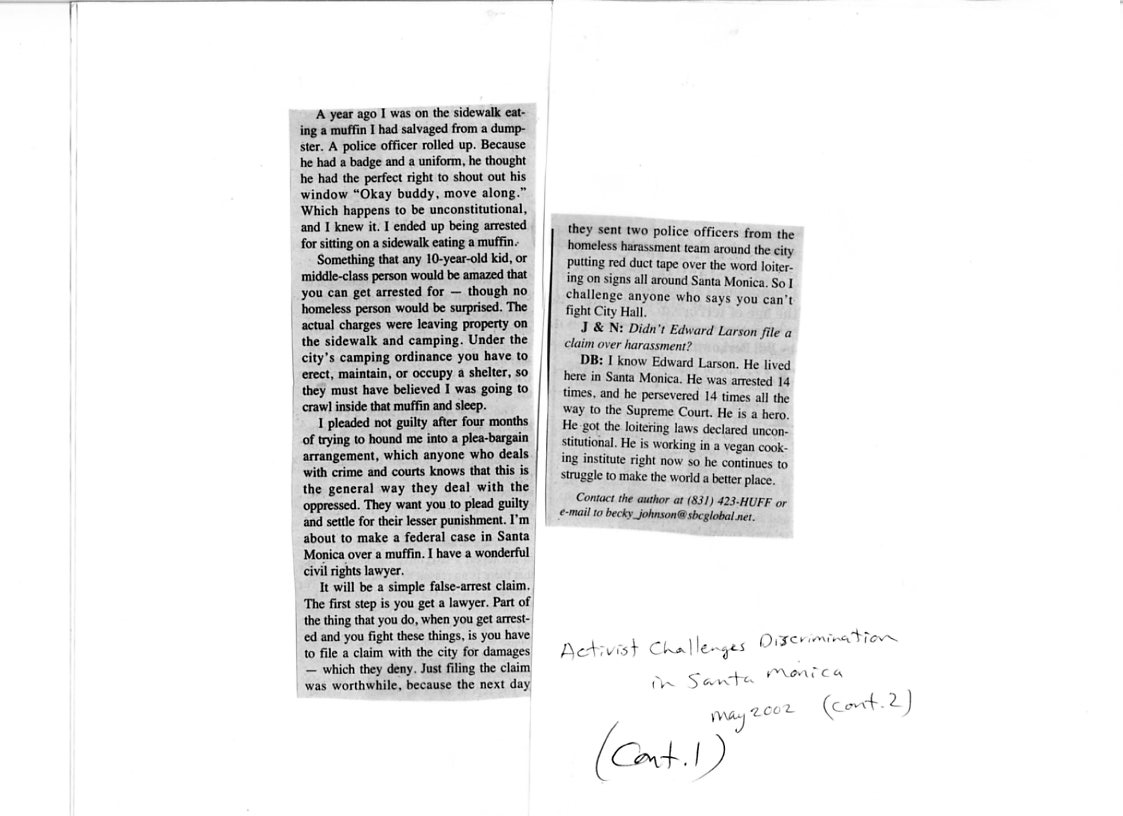 A year ago I was on the sidewalk eat-
ing a muffin I had salvaged from a dump-
ster. A police officer rolled up. Because
he had a badge and a uniform, he thought
he had the perfect right to shout out his
window “Okay buddy, move along.”
Which happens to be unconstitutional,
and I knew it. I ended up being arrested
for sitting on a sidewalk eating a muffin.
Something that any 10-year-old kid, or
middle-class person would be amazed that
you can get arrested for — though no
homeless person would be surprised. The
actual charges were leaving property on
the sidewalk and camping. Under the
city’s camping ordinance you have to
erect, maintain, or occupy a shelter, so
they must have believed I was going to
crawl inside that muffin and sleep.
I pleaded not guilty after four months
of trying to hound me into a plea-bargain
arrangement, which anyone who deals
with crime and courts knows that this is
the general way they deal with the
oppressed. They want you to plead guilty
and settle for their lesser punishment. I’m
about to make a federal case in Santa
Monica over a muffin. I have a wonderful
civil rights lawyer.
It will be a simple false-arrest claim.
The first step is you get a lawyer. Part of
the thing that you do, when you get arrest-
ed and you fight these things, is you have
to file a claim with the city for damages
— which they deny. Just filing the claim
was worthwhile, because the next day
they sent two police officers from the
homeless harassment team around the city
putting red duct tape over the word loiter-
ing on signs all around Santa Monica. So I
challenge anyone who says you can’t
fight City Hall.
J & N: Didn’t Edward Larson file a
claim over harassment?
DB: I know Edward Larson. He lived
here in Santa Monica. He was arrested 14
times, and he persevered 14 times all the
way to the Supreme Court. He is a hero.
He got the loitering laws declared uncon-
stitutional. He is working in a vegan cook-
ing institute right now so he continues to
struggle to make the world a better place.
Contact the author at (831) 423-HUFF or
e-mail to becky_johnson@sbcglobal.net.
Activist Challenges Discrimination
in Santa Monica
may 2002 (cont.2)
(Cont.1)